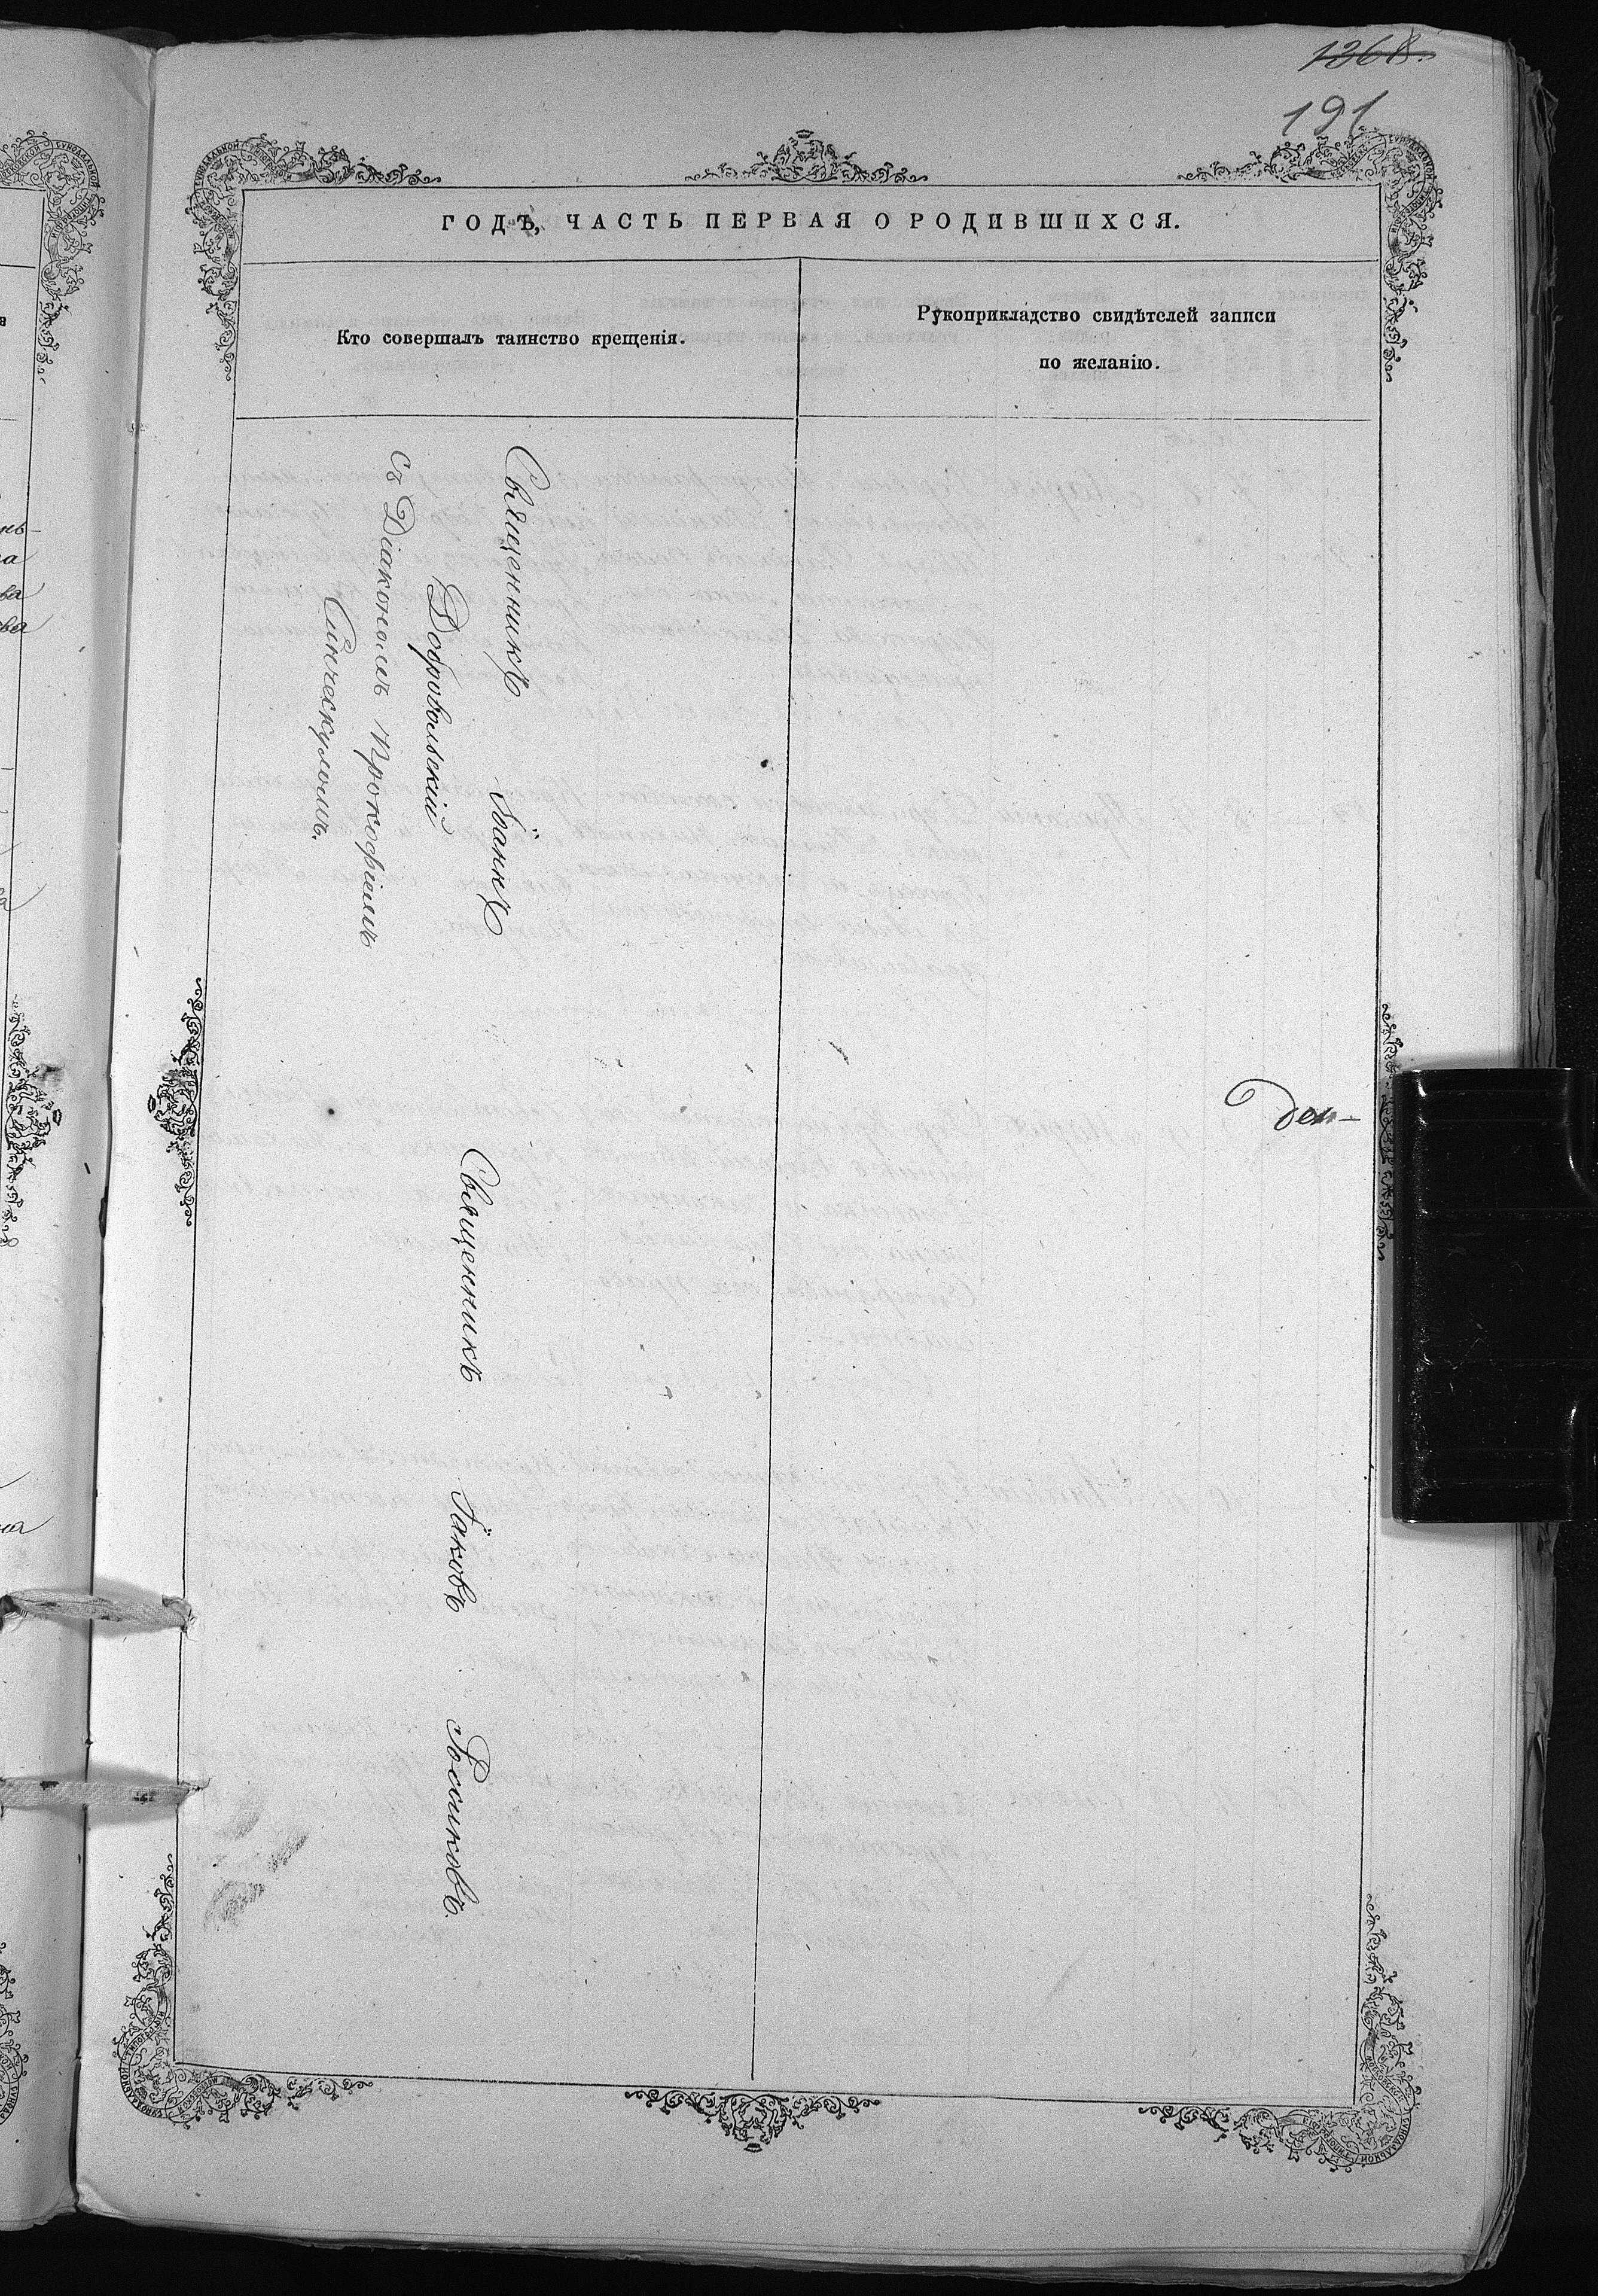 1368.
191
ГОДЪ, ЧАСТЬ ПЕРВАЯ О РОДИВШИХСЯ.
Кто совершалъ таинство крещенія.
Рукоприкладство свидѣтелей записи
по желанію.
Священникъ Іоаннъ
Добровольскій
съ Діакономъ Прокофіемъ
Синческуломъ.
Священникъ Іаковъ Росликовъ.
ден-